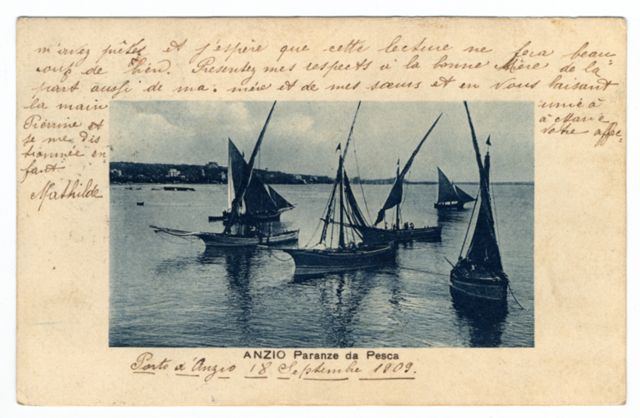 m'avez prêtés et j'espère que cette lecture me fera beau
coup de bien. Presentez mes respects à la bonne Mère de la
part aussi de ma mère et de mes sœurs et en Vous baisant
la main unie à
Pierrine et à Marie
je me dis votre affec
tionnée en
fant
Mathilde
ANZIO Paranze da Pesca
Porto d'Anzio 18 Septembre 1909.